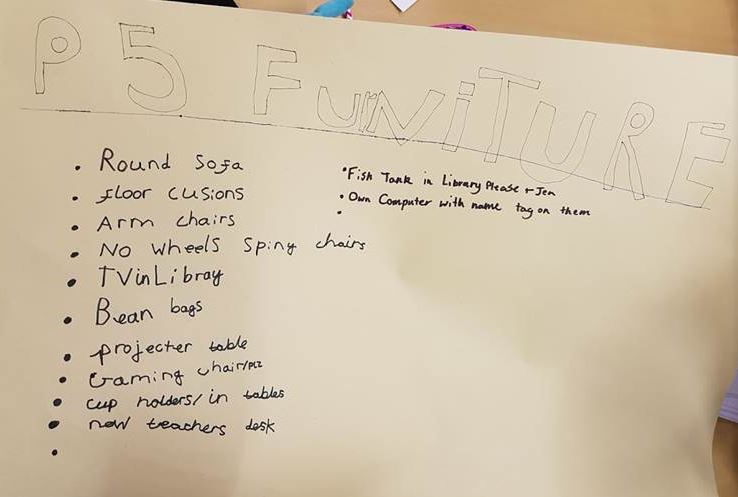 P5 FurNiTURE
• Round Sofa
• floor cusions
• Arm chairs
• No wheels spiny chairs
• TV in Libray
• Bean bags
• projecter table
• Gaming chair/plz
• cup holders/in tables
• new teachers desk
•
• Fish Tank in Library Please + Jen
• Own Computer with name tag on them
•